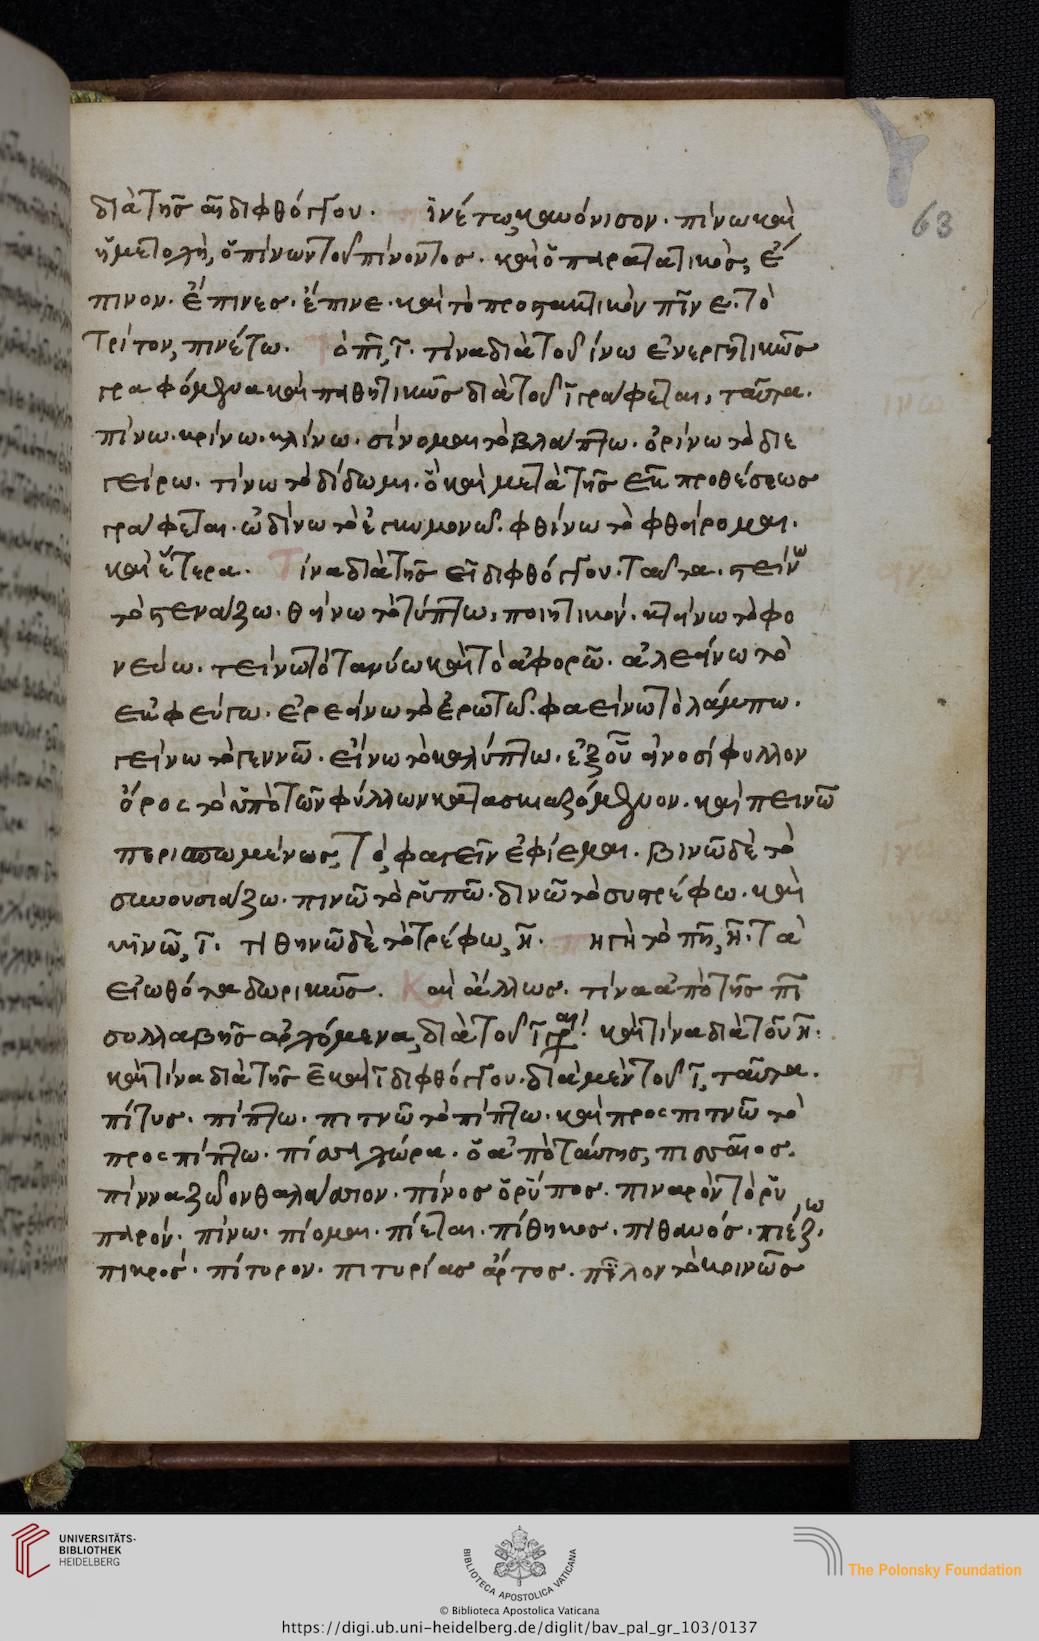 διὰ τῆς αι διφθόγγου. ἰνέτω, κανόνισον. πίνω καὶ
ἡ μετοχὴ, ὁ πίνων τοῦ πίνοντος. καὶ ὁ παρατατικὸς, ἔ
πινον. ἔπινες. ἔπινε. καὶ τὸ προστακτικὸν πῖνε. τὸ
τρίτον, πινέτω. Τὸ πῑ, ῑ. τίνα διὰ τοῦ ίνω ἐνεργητικῶς
γραφόμενα καὶ παθητικῶς διὰ τοῦ ῑ γράφεται, ταῦτα.
πίνω. κρίνω. κλίνω. σίνομαι τὸ βλάπτω. ὀρίνω τὸ διε
γείρω. τίνω τὸ δίδωμι. ὃ καὶ μετὰ τῆς ἐκ προθέσεως
γράφεται. ὠδίνω τὸ ἐγκυμονῶ. φθίνω τὸ φθείρομαι.
καὶ ἕτερα. Τίνα διὰ τῆς ει διφθόγγου. ταῦτα. στείνω
τὸ στενάζω. θείνω τὸ τύπτω, ποιητικόν. κτείνω τὸ φο
νεύω. τείνω τὸ τανύω καὶ τὸ ἀφορῶ. ἀλεείνω τὸ
ἐκφεύγω. ἐρεείνω τὸ ἐρωτῶ. φαείνω τὸ λάμπω.
γείνω τὸ γεννῶ. εἵνω τὸ καλύπτω. ἐξ οὗ εἰνοσίφυλλον
ὄρος τὸ ὑπὸ τῶν φύλλων κατασκιαζόμενον. καὶ πεινῶ
περισπωμένως, τὸ, φαγεῖν ἐφίεμαι. βινῶ δὲ τὸ
συνουσιάζω. πινῶ τὸ ῥυπῶ. δινῶ τὸ συστρέφω. καὶ
κινῶ, ῑ. τιθηνῶ δὲ τὸ τρέφω, η̄. πηγὴ τὸ πη, η̄. τὰ
εἰωθότα δωρικῶς. Καὶ ἄλλως. τίνα ἀπὸ τῆς πῑ
συλλαβῆς ἀρχόμενα, διὰ τοῦ ῑ γραϊ. καὶ τίνα διὰ τοῦ η̄.
καὶ τίνα διὰ τῆς ε̄ καὶ ῑ διφθόγγου. διὰ μὲν τοῦ ῑ, ταῦτα.
πίτυς. πίπτω. πιτνῶ τὸ πίπτω. καὶ προσπιτνῶ τὸ
προσπίπτω. πίσσα χώρα. ὁ ἀπὸ ταύτης, πισσαῖος.
πίννα ζῶον θαλάσσιον. πίνος ὁ ῥύπος. πιναρὸν τὸ ῥυ
παρόν. πίνω. πίομαι. πίεται. πίθηκος. πιθανός. πιέζω.
πικρός. πίτυρον. πιτυρίας ἄρτος. πῖλον τὸ κοινῶς
63
UNIVERSITÄTS-
BIBLIOTHEK
HEIDELBERG
BIBLIOTECA APOSTOLICA VATICANA
The Polonsky Foundation
© Biblioteca Apostolica Vaticana
https://digi.ub.uni-heidelberg.de/diglit/bav_pal_gr_103/0137